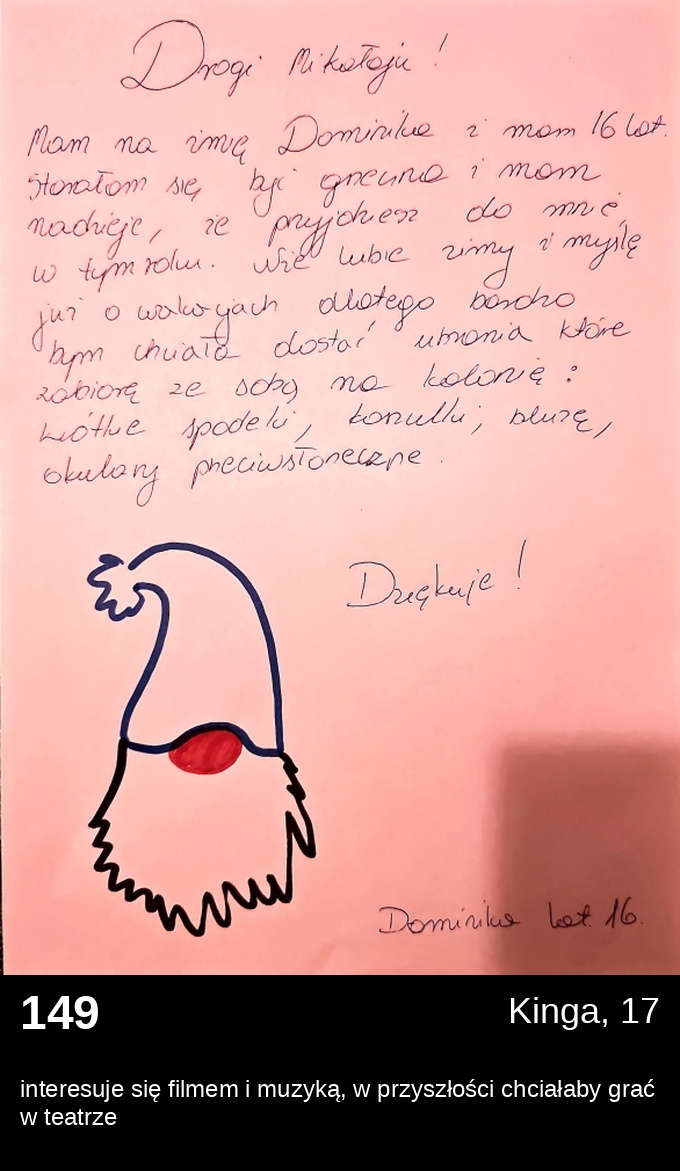 Drogi Mikołaju!
Mam na imię Dominika i mam 16 lat.
Starałam się być grzeczna i mam
nadzieję, że przyjdziesz do mnie,
w tym roku. Nie lubię zimy i myślę
już o wakacjach dlatego bardzo
bym chciała dostać ubrania które
zabiorę ze sobą na kolonię:
krótkie spodenki, koszulki, bluzę,
okulary przeciwsłoneczne.
Dziękuję!
Dominika lat 16.
149
Kinga, 17
interesuje się filmem i muzyką, w przyszłości chciałaby grać
w teatrze